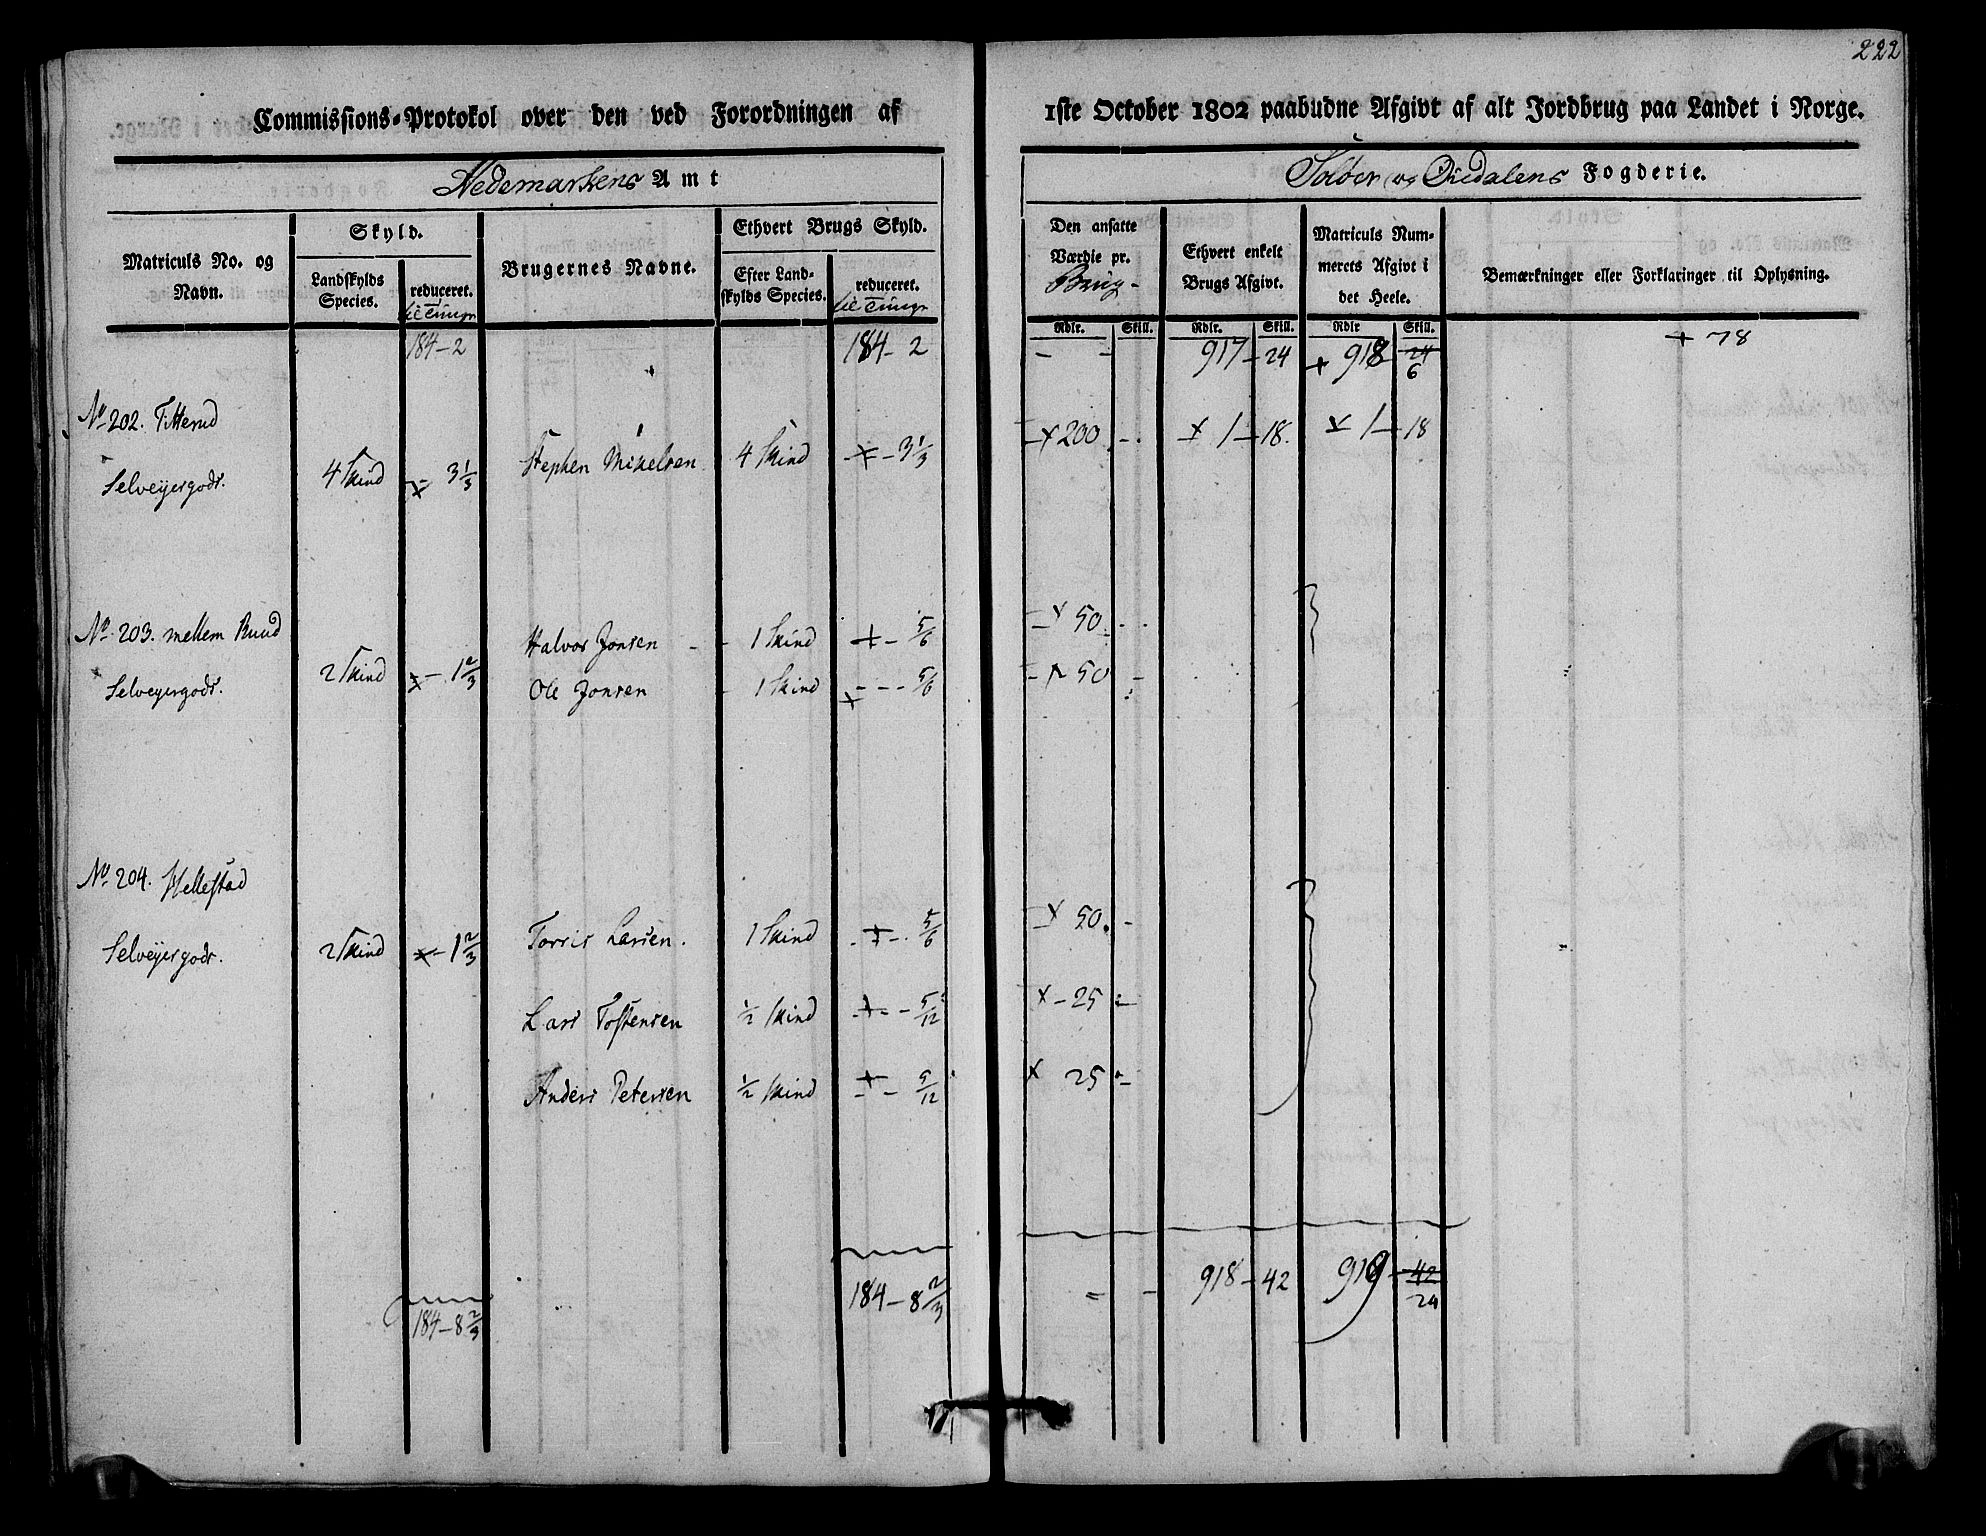 222
Commissions-Protokol over den ved Forordningen af 1ste October 1802 paabudne Afgivt af alt Jordbrug paa Landet i Norge.
Hedemarkens Amt
Soløer og Øsedalens Fogderie.
Matriculs No. og Navn.
Skyld.
Landskylds Species.
reduceret.
til Tunge
Brugernes Navne.
Ethvert Brugs Skyld.
Efter Landskylds Species.
reduceret.
til Tunge
Den ansatte Værdie pr.
Brug
Ethvert enkelt Brugs Afgivt.
Matriculs Nummerets Afgivt i det Heele.
Bemærkninger eller Forklaringer til Oplysning.
Rdlr. Skill. Rdlr. Skill. Rdlr Skill.
184 - 2 184 - 2 - - 917 - 24 + 918 24 6 + 78
No 202. Titterud
Selveyergods. 4 Skind 3 1/3 Stephen Mikelsen 4 Skind 3 1/3 x 200 - x 1 - 18. x 1 - 18
No 203. mellem Ruud
Selveyergods. 2 Skind 1 2/3
Halvor Jonsen - 1 Skind 5/6 x 50.
Ole Jonsen - 1 Skind 5/6 50
No 204. Hellestad
Selveyergods. 2 Skind 1 2/3
Torris Larsen. 1 Skind 5/6 x 50.
Lars Tostensen 1/2 Skind 5/12 x - 25
Anders Petersen 1/2 Skind 5/12 x 25
184 - 8 2/3 184 - 8 2/3 918 - 42 919 42 24